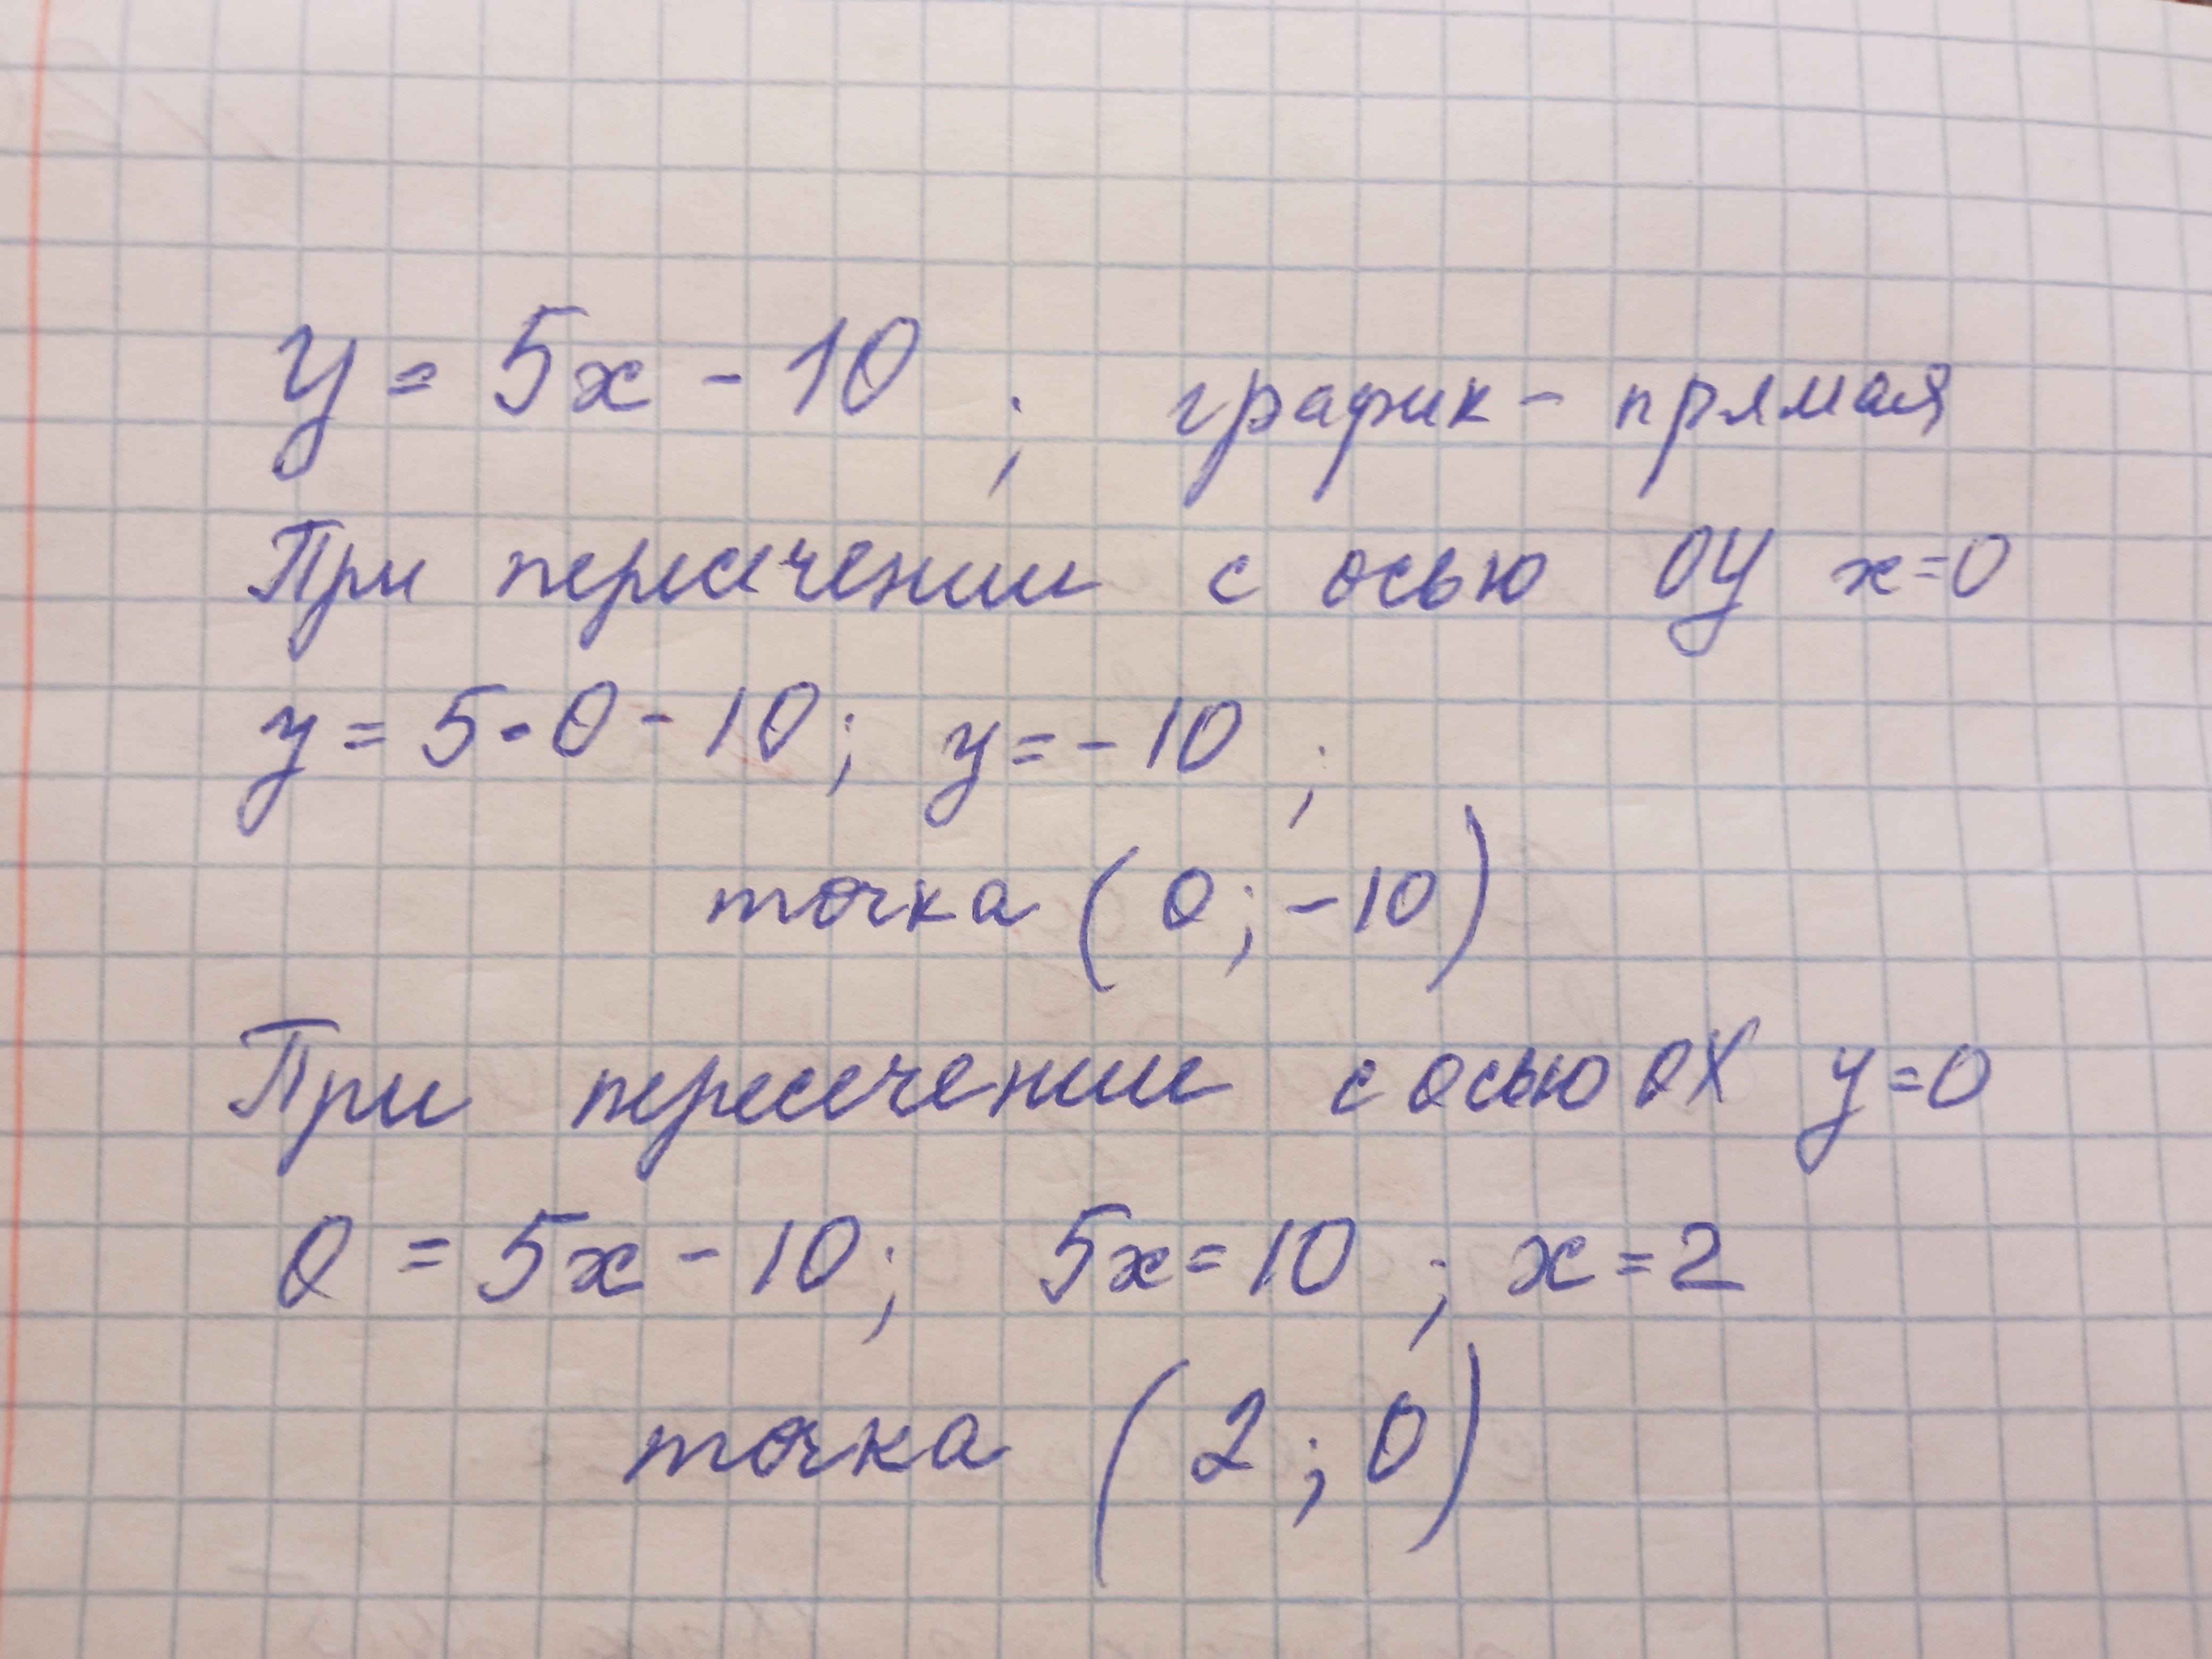 y = 5x - 10 ; график - прямая
При пересечении с осью OY x=0
y = 5·0 - 10; y = -10 ;
точка (0; -10)
При пересечении с осью OX y=0
0 = 5x - 10; 5x = 10 ; x = 2
точка (2 ; 0)